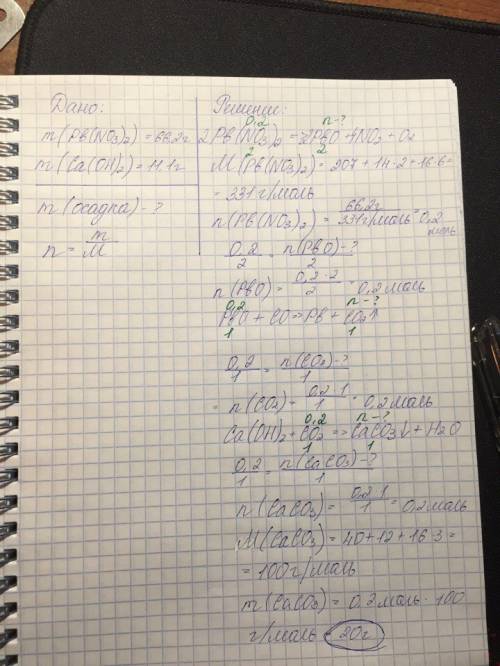 Дано:
m(Pb(NO3)2) = 66,2г
m(Ca(OH)2) = 11,1г
m(осадка) - ?
n = m/M
Решение:
0,2 n-?
2Pb(NO3)2 = 2PbO + 4NO2 + O2
2 2
M(Pb(NO3)2) = 207 + 14·2 + 16·6 =
= 331 г/моль
n(Pb(NO3)2) = 66,2г / 331г/моль = 0,2 моль
0,2/2 = n(PbO)-?/2
n(PbO) = 0,2·2/2 = 0,2 моль
0,2 n-?
PbO + CO => Pb + CO2↑
1 1
0,2/1 = n(CO2)-?/1
= n(CO2) = 0,2·1/1 = 0,2 моль
0,2 n-?
Ca(OH)2 + CO2 => CaCO3↓ + H2O
1 1
0,2/1 = n(CaCO3)-?/1
n(CaCO3) = 0,2·1/1 = 0,2 моль
M(CaCO3) = 40 + 12 + 16·3 =
= 100 г/моль
m(CaCO3) = 0,2 моль · 100
г/моль = 20г